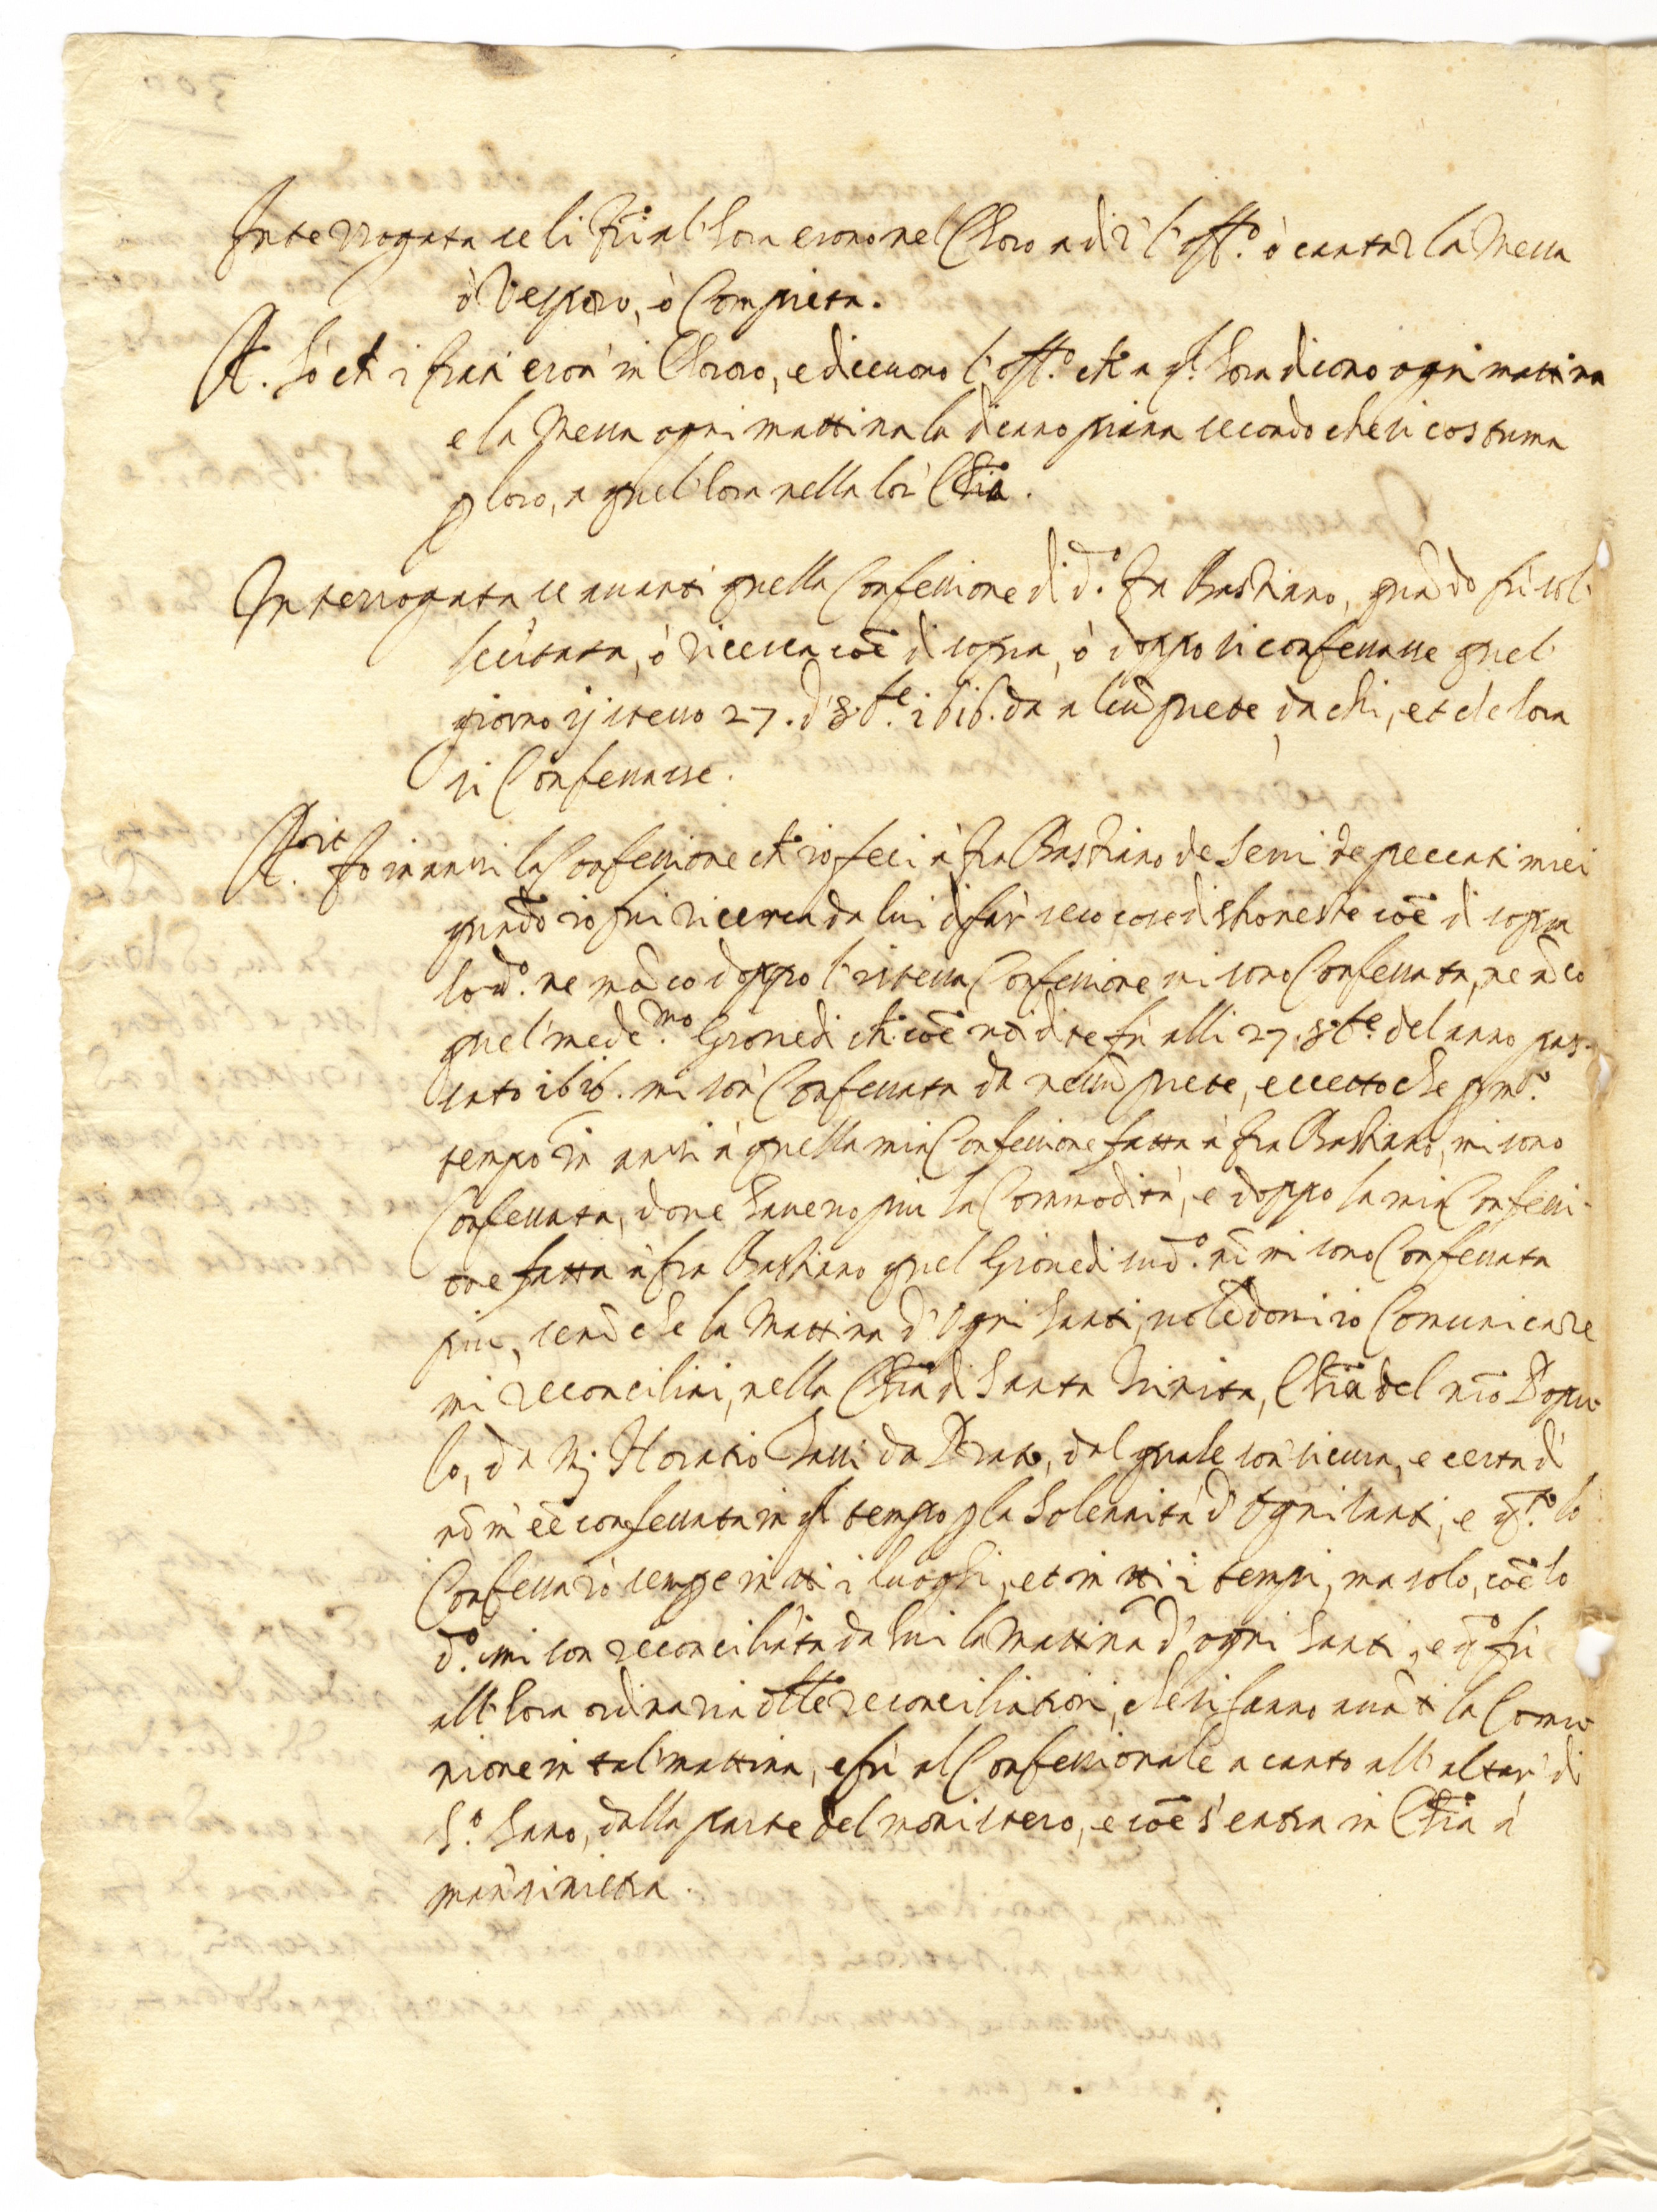 Interrogata se li frĩ al'hora erono nel Choro a dir l'offo. ò cantar la Messa
ò Vespero, ò Compieta.
R. Sò che i frati eron' in Choro, e diceuono l'offo. che a qll'hora dicono ogni mattina
e la Messa ogni mattina la dicano piana secondo che si costuma
p loro, a quel'hora nella lor' Chia.
Interrogata se auanti quella Confessione di do. fra Bastiano, quãdo fù sol-
lecitata, ò ricerca coẽ di sopra, ò doppo si confessasse quel
giorno istesso 27. d'8bre. 1616. da alcũ prete, da chi, et che hora
si Confessasse.
Rit. Io inanzi la Confessione che io feci à fra Bastiano de Serui de peccati miei
quãdo io fui ricerca da lui di far' seco cose dishoneste coẽ di sopra
ho do. ne mãco doppo l'istessa Confessione mi sono Confessata, ne ãco
quel' medemo. Giouedi che coẽ uoi dite fù alli 27. 8bre. del anno pas-
sato 1616. mi son' Confessata da nessũ prete, eccetto che pmo.
tempo in anzi à quella mia Confessione fatta à fra Bastiano, mi sono
Confessata, doue haueuo piu la Commodità, e doppo la mia Confessi-
one fatta à fra Bastiano quel Giouedi sudo. nõ mi sono Confessata
piu, senõ che la Mattina d'Ogni Santi, uolẽdomi io Comunicare
mi reconciliai, nella Chia di Santa Trinita, Chia del mio Popu-
lo, da Mj Horatio da Prato, dal quale son' sicura, e certa di
nõ m' eẽ confessata in ql tempo p la Solennità d'Ogni santi, e qto. lo
Confessarò sempe in tti i luoghi, et in tti i tempi, ma solo, coẽ ho
do. mi son reconciliata da lui la Mattina d'ogni Santi, e qo fù
all'hora ordinaria dlle reconciliationi, che si fanno auãti la Comu-
nione in tal' mattina, e fù al Confessionale a canto all'altar' di
So. Sano, dalla parte del monistero, e coẽ s'entra in Chia à
man' sinistra.